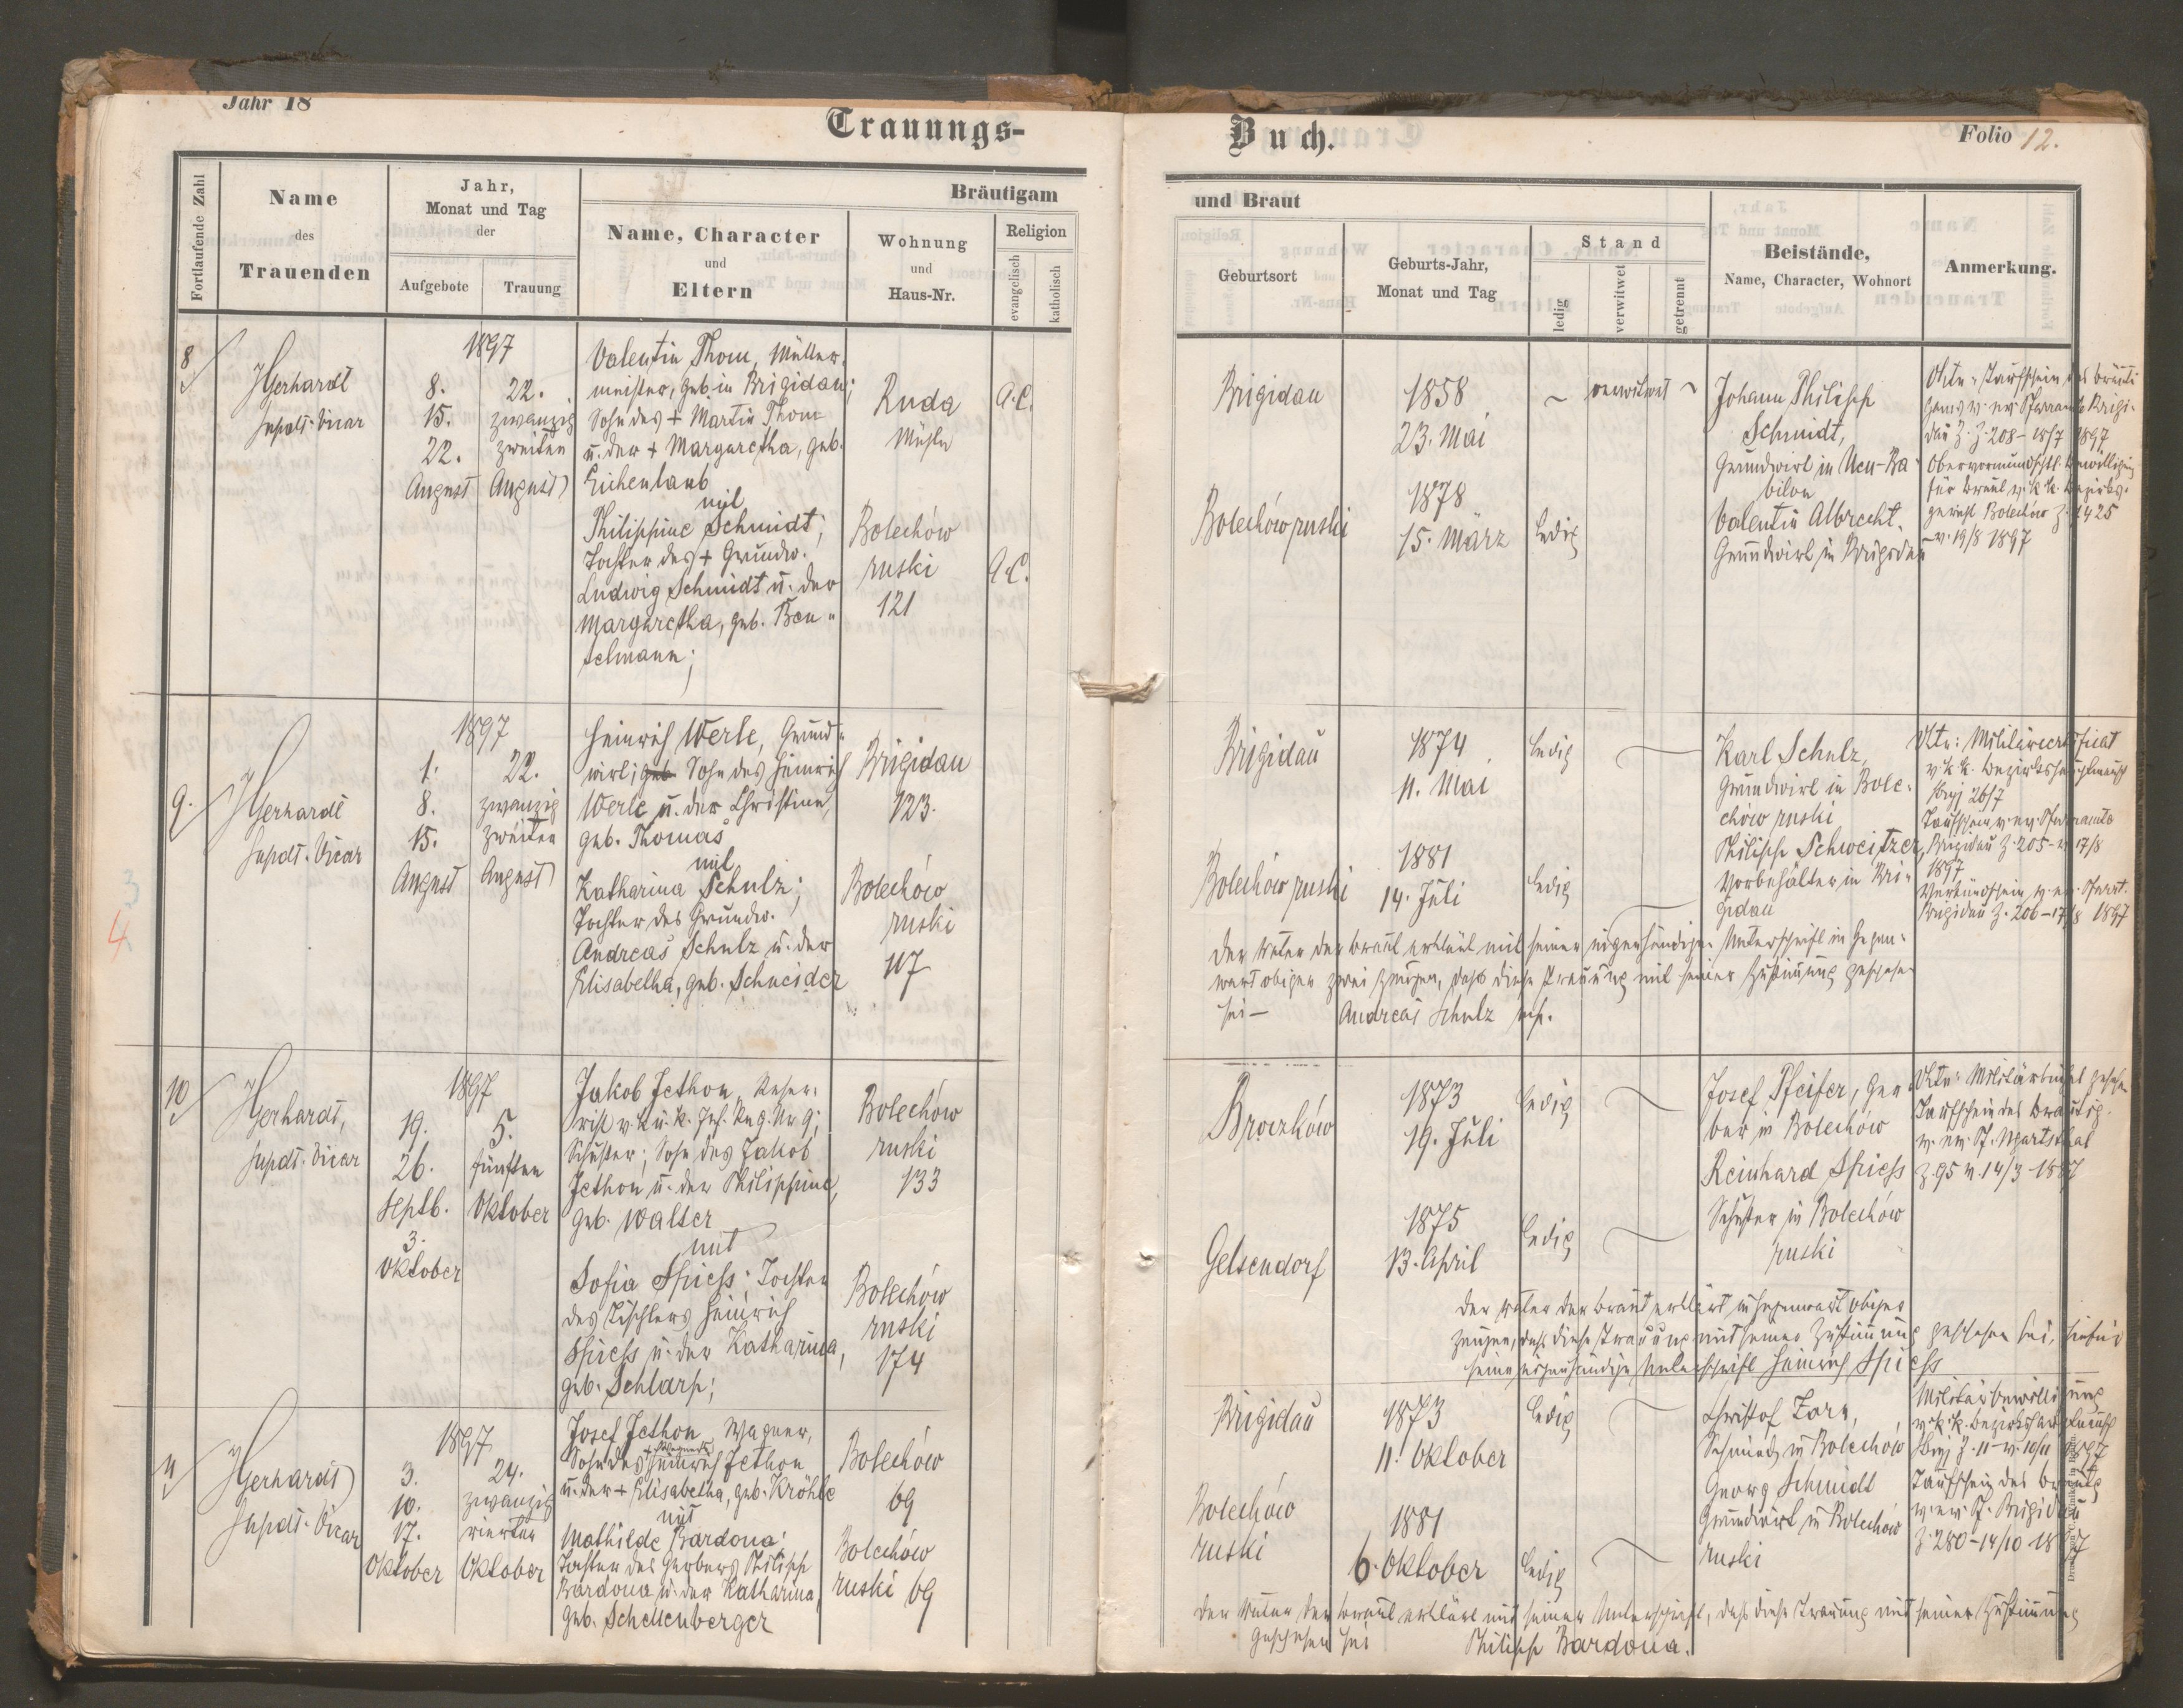 Jahr 18
Trauungs-
Buch.
Folio 12.
Fortlaufende Zahl
Name
des
Trauenden
Jahr,
Monat und Tag
der
Aufgebote
Trauung
Bräutigam
Name, Character
und
Eltern
Wohnung
und
Haus-Nr.
Religion
evangelisch
katholisch
und Braut
Geburtsort
Geburts-Jahr,
Monat und Tag
Stand
ledig
verwitwet
getrennt
Beistände,
Name, Character, Wohnort
Anmerkung.
8
Gerhardt
Supdt. Vicar
1897
8.
15.
22.
August
22.
zwanzig
zweiten
August
Valentin Thom, Müller-
meister, geb. in Brigidau;
Sohn des + Martin Thom
u. der + Margaretha, geb.
Eichenlaub
mit
Philippine Schmidt;
Tochter des + Grundw.
Ludwig Schmidt u. der
Margaretha, geb. Ben-
selmann;
Ruda
Mühle
A.C.
Bolechów
ruski
121
A.C.
Brigidau
1858
23. Mai
verwitwet
Bolechów ruski
1878
15. März
ledig
Johann Philipp
Schmidt,
Grundwirt in Neu-Ba-
bilon
Valentin Albrecht.
Grundwirt in Brigidau
Akte: Taufschein des Bräuti-
gams v. ev. Pfarramte Brigi-
dau Z. 208 - 18/7 1897
Obervormundschftl. Bewilligung
für Braut v. k. k. Bezirks-
gericht Bolechów Z. 2425
v. 19/8 1897
9.
Gerhardt
Supdt. Vicar
1897
1.
8.
15.
August
22.
zwanzig
zweiten
August
Heinrich Werle, Grund-
wirt; geb. Sohn des Heinrich
Werle u. der Christine,
geb. Thomas
mit
Katharina Schulz;
Tochter des Grundw.
Andreas Schulz u. der
Elisabetha, geb. Schneider
Brigidau
123.
Bolechów
ruski
117
Brigidau
1874
11. Mai
ledig
Bolechów ruski
1881
14. Juli
ledig
Karl Schulz,
Grundwirt in Bole-
chów ruski
Philipp Schweitzer,
Vorbehälter in Bri-
gidau
Akte: Militärcertificat
v. k. k. Bezirkshauptmansch
Stryj 26/7
Taufschein v. ev. Pfarramte
Brigidau Z. 205 - v. 17/8
1897
Verkündschein v. ev. Pfarrt.
Brigidau Z. 206 - 17/8 1897
Der Vater der Braut erklärt mit seiner eigenhändigen Unterschrift in Gegen-
wart obiger zwei Zeugen, dass diese Trauung mit seiner Zustimmung geschehen
sei - Andreas Schulz
3
4
10
Gerhardt,
Supdt. Vicar
1897
19.
26.
Septb.
3.
Oktober
5.
fünften
Oktober
Jakob Jethon, Reser-
vist v. k. u. k. Inf. Rg. Nr 9;
Schuster; Sohn des Jakob
Jethon u. der Philippine,
geb. Walter
mit
Sofia Spiess; Tochter
des Tischlers Heinrich
Spiess u. der Katharina,
geb. Schlarp;
Bolechów
ruski
133
Bolechów
ruski
174
Broczków
1873
19. Juli
ledig
Gelsendorf
1875
13. April
ledig
Josef Pfeifer, Ger-
ber in Bolechów
Reinhard Spiess
Schuster in Bolechów
ruski
Akte: Militärbüchel gesehen
Taufschein des Bräutig.
v. ev. Pf. Ugartsthal
Z. 95 v. 14/3 1897
Der Vater der Braut erklärt in Gegenwart obiger
Zeugen, dass diese Trauung mit seiner Zustimmung geschehen sei, hiefür
seine eigenhändige Unterschrift Heinrich Spiess
11
Gerhardt
Supdt. Vicar
1897
3.
10.
17.
Oktober
24.
zwanzig
vierten
Oktober
Josef Jethon, Wagner,
Sohn des + Wagners Heinrich Jethon
u. der + Elisabetha, geb. Kröhle
mit
Mathilde Bardona;
Tochter des Gerbers Philipp
Bardona u. der Katharina,
geb. Schellenberger
Bolechów
69
Bolechów
ruski 69
Brigidau
1873
11. Oktober
ledig
Bolechów
ruski
1881
6. Oktober
ledig
Christof Zorn,
Schmied in Bolechów
Georg Schmidt
Grundwirt in Bolechów
ruski
Militärbewilligung
v. k. k. Bezirkshauptmansch
Stryj Z. 11 - v. 10/11 1897
Taufschein des Bräutig
v. ev. Pf. Brigidau
Z. 280 - 14/10 1897
Der Vater der Braut erklärt mit seiner Unterschrift, dass diese Trauung mit seiner Zustimmung
geschehen sei Philipp Bardona.